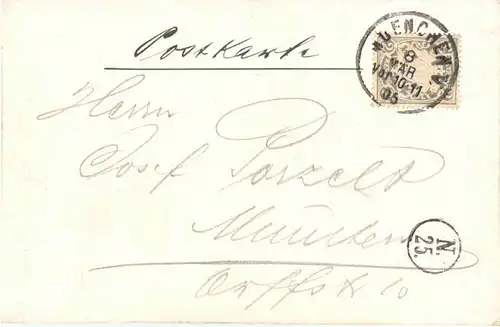 Postkarte
MUENCHEN V.
8
MÄR
Vor 10-11
06
Herrn
Josef Porzelt
München
N.
25.
Orffstr 10